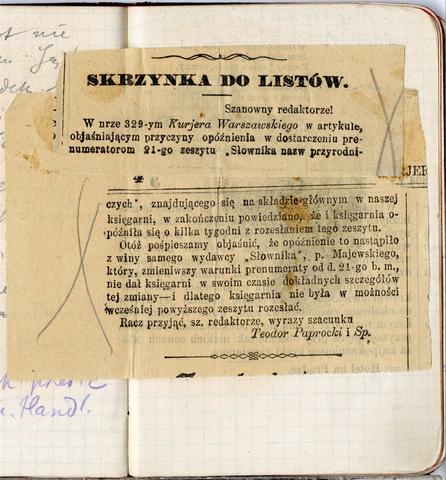 SKRZYNKA DO LISTÓW.
Szanowny redaktorze!
W nrze 329-ym Kurjera Warszawskiego w artykule,
objaśniającym przyczyny opóźnienia w dostarczeniu pre-
numeratorom 21-go zeszytu „Słownika nazw przyrodni-
JER
czych", znajdującego się na składzie głównym w naszej
księgarni, w zakończeniu powiedziano, że i księgarnia o-
późniła się o kilka tygodni z rozesłaniem tego zeszytu.
Otóż pośpieszamy objaśnić, że opóźnienie to nastąpiło
z winy samego wydawcy „Słownika", p. Majewskiego,
który, zmieniwszy warunki prenumeraty od d. 21-go b. m.,
nie dał księgarni w swoim czasie dokładnych szczegółów
tej zmiany—i dlatego księgarnia nie była w możności
wcześniej powyższego zeszytu rozesłać.
Racz przyjąć, sz. redaktorze, wyrazy szacunku
Teodor Paprocki i Sp.
Handl.